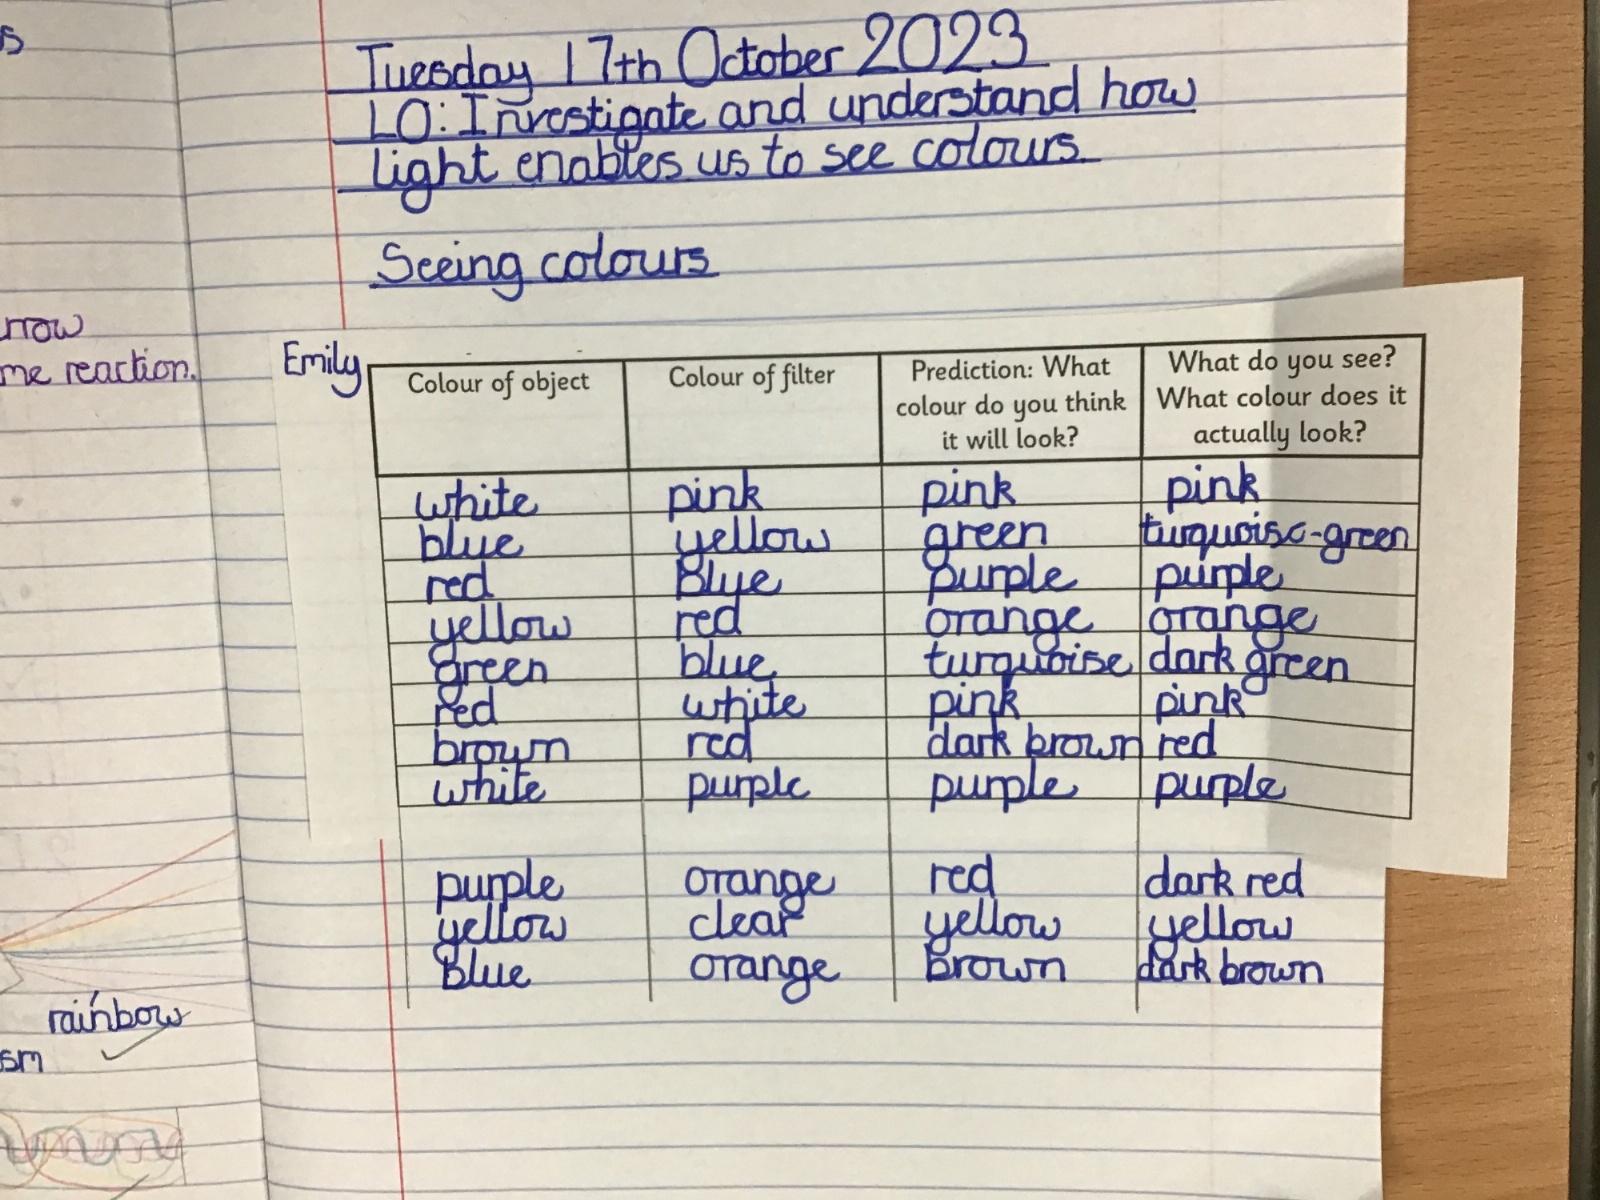 s
rrow
me reaction.
rainbow
sm
Tuesday 17th October 2023
LO: Investigate and understand how
light enables us to see colours
Seeing colours
Emily
Colour of object Colour of filter Prediction: What colour do you think it will look? What do you see? What colour does it actually look?
white pink pink pink
blue yellow green turquoise-green
red Blue purple purple
yellow red orange orange
green blue turquoise dark green
red white pink pink
brown red dark brown red
white purple purple purple
purple orange red dark red
yellow clear yellow yellow
blue orange brown dark brown